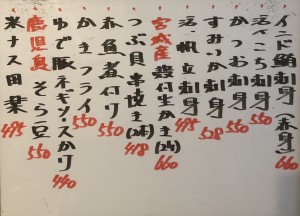 インド鮪刺身(赤身) 660
活〆こち刺身 550
かつお刺身 550
すみいか刺身 528
活帆立刺身 495
宮城産殻付生かき(2ケ) 660
つぶ貝串焼き(2本) 418
赤魚煮付け 550
かきフライ 550
ゆで豚ネギソースかけ 440
鹿児島そら豆 550
米ナス田楽 495